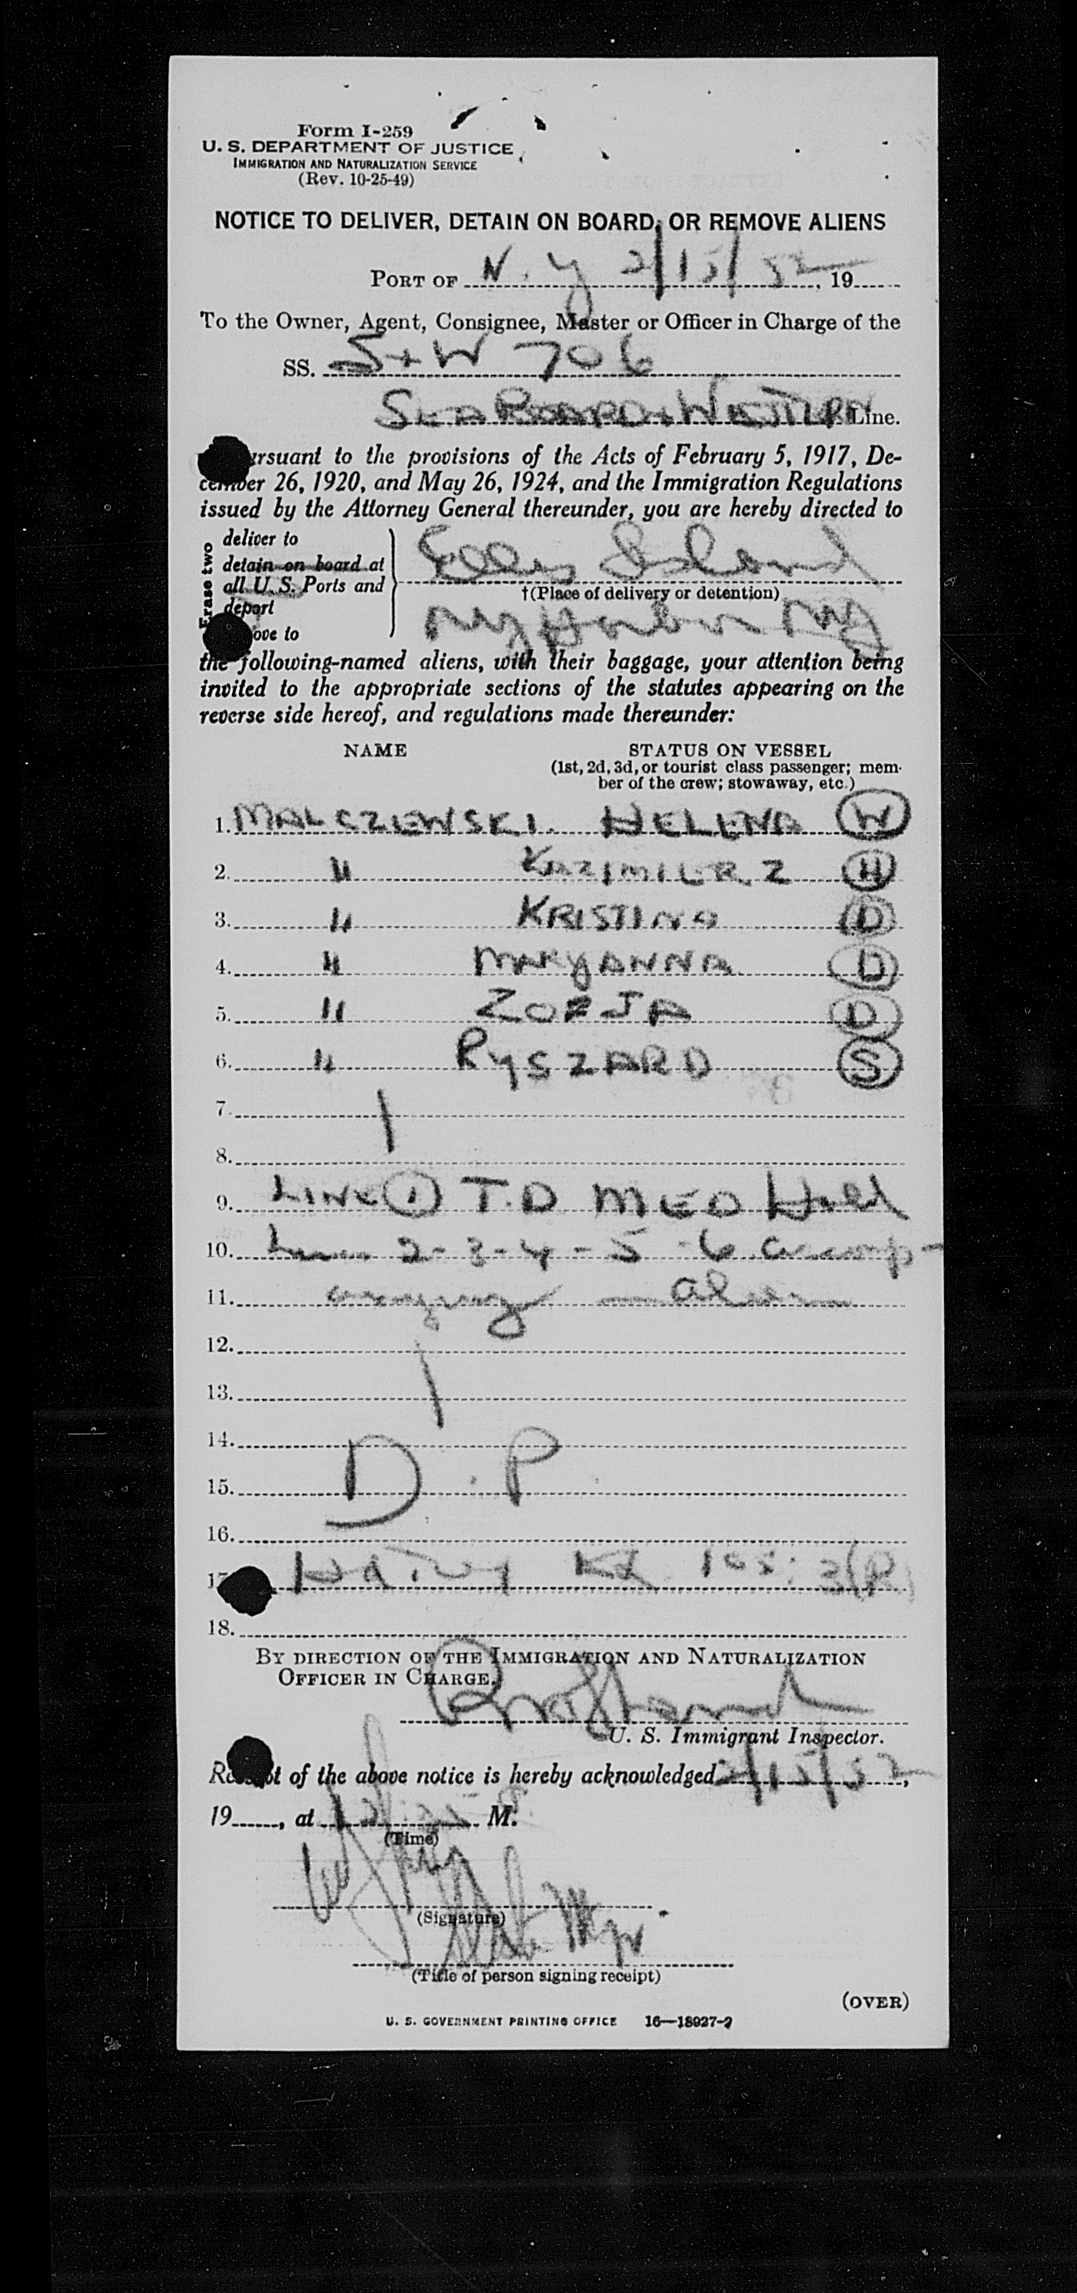 Form I-259
U. S. DEPARTMENT OF JUSTICE
IMMIGRATION AND NATURALIZATION SERVICE
(Rev. 10-25-49)
NOTICE TO DELIVER, DETAIN ON BOARD, OR REMOVE ALIENS
PORT OF N. Y 2/15/52, 19
To the Owner, Agent, Consignee, Master or Officer in Charge of the
SS. S + W 706
SEABOARD + WESTERN Line.
rsuant to the provisions of the Acts of February 5, 1917, De-
cember 26, 1920, and May 26, 1924, and the Immigration Regulations
issued by the Attorney General thereunder, you are hereby directed to
Erase two
deliver to
detain on board at
all U.S. Ports and
deport
ove to
Ellis Island
†(Place of delivery or detention)
NY Harbor NY
the following-named aliens, with their baggage, your attention being
invited to the appropriate sections of the statutes appearing on the
reverse side hereof, and regulations made thereunder:
NAME STATUS ON VESSEL
(1st, 2d, 3d, or tourist class passenger; mem-
ber of the crew; stowaway, etc.)
1. MALCZEWSKI HELENA W
2. " KAZIMIERZ H
3. " KRISTINA D
4. " MARYANNA D
5. " ZOFJA D
6. " RYSZARD S
7.
8.
9. LINE 1 T.D MED Hold
10. Lines 2-3-4-5-6 accomp-
11. anying alien
12.
13.
14.
15. D.P.
16.
17.
18.
BY DIRECTION OF THE IMMIGRATION AND NATURALIZATION
OFFICER IN CHARGE.
U. S. Immigrant Inspector.
Receipt of the above notice is hereby acknowledged 2/15/52,
19, at M.
(Time)
(Signature)
Mgr.
(Title of person signing receipt)
(OVER)
U. S. GOVERNMENT PRINTING OFFICE 16—18927-2